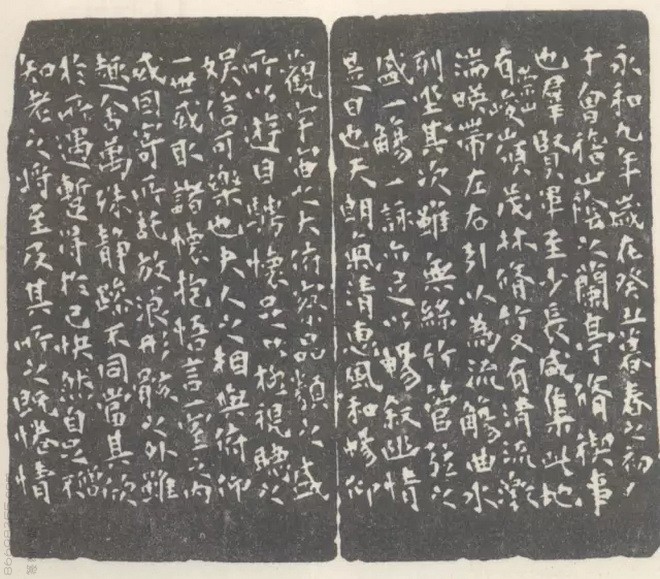 永和九年歲在癸丑暮春之初
于會稽山陰之蘭亭脩禊事
也羣賢畢至少長咸集此地
有崇山峻領茂林脩竹又有清流激
湍暎帶左右引以為流觴曲水
列坐其次雖無絲竹管弦之
盛一觴一詠亦足以暢叙幽情
是日也天朗氣清惠風和暢仰
觀宇宙之大俯察品類之盛
所以遊目騁懷足以極視聽之
娛信可樂也夫人之相與俯仰
一世或取諸懷抱悟言一室之內
或因寄所託放浪形骸之外雖
趣舍萬殊靜躁不同當其欣
於所遇暫得於己快然自足不
知老之將至及其所之既惓情